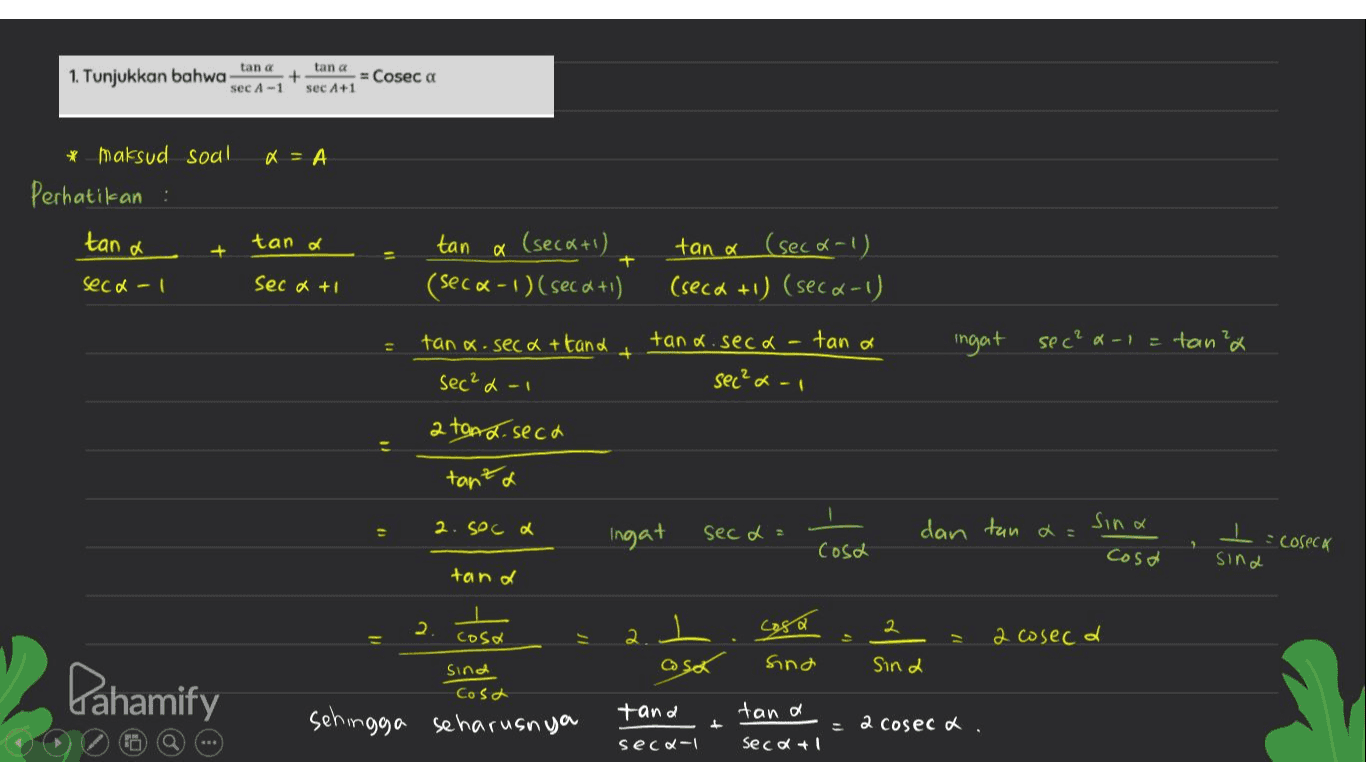 1. Tunjukkan bahwa tan α / sec A −1 + tan α / sec A+1 = Cosec α
* Maksud soal α = A
Perhatikan :
tan α / sec α − 1 + tan α / sec α +1 = tan α (sec α+1) / (sec α −1)(sec α+1) + tan α (sec α−1) / (sec α +1) (sec α−1)
= tan α . sec α + tan α / sec² α −1 + tan α . sec α − tan α / sec² α − 1 ingat sec² α −1 = tan² α
= 2 tan α . sec α / tan² α
= 2 . sec α / tan α Ingat sec α = 1 / cos α dan tan α = sin α / cos α , 1 / sin α = cosec α
= 2 . 1 / cos α / sin α / cos α = 2 . 1 / cos α . cos α / sin α = 2 / sin α = 2 cosec α
Sehingga seharusnya tan α / sec α−1 + tan α / sec α +1 = 2 cosec α .
Pahamify